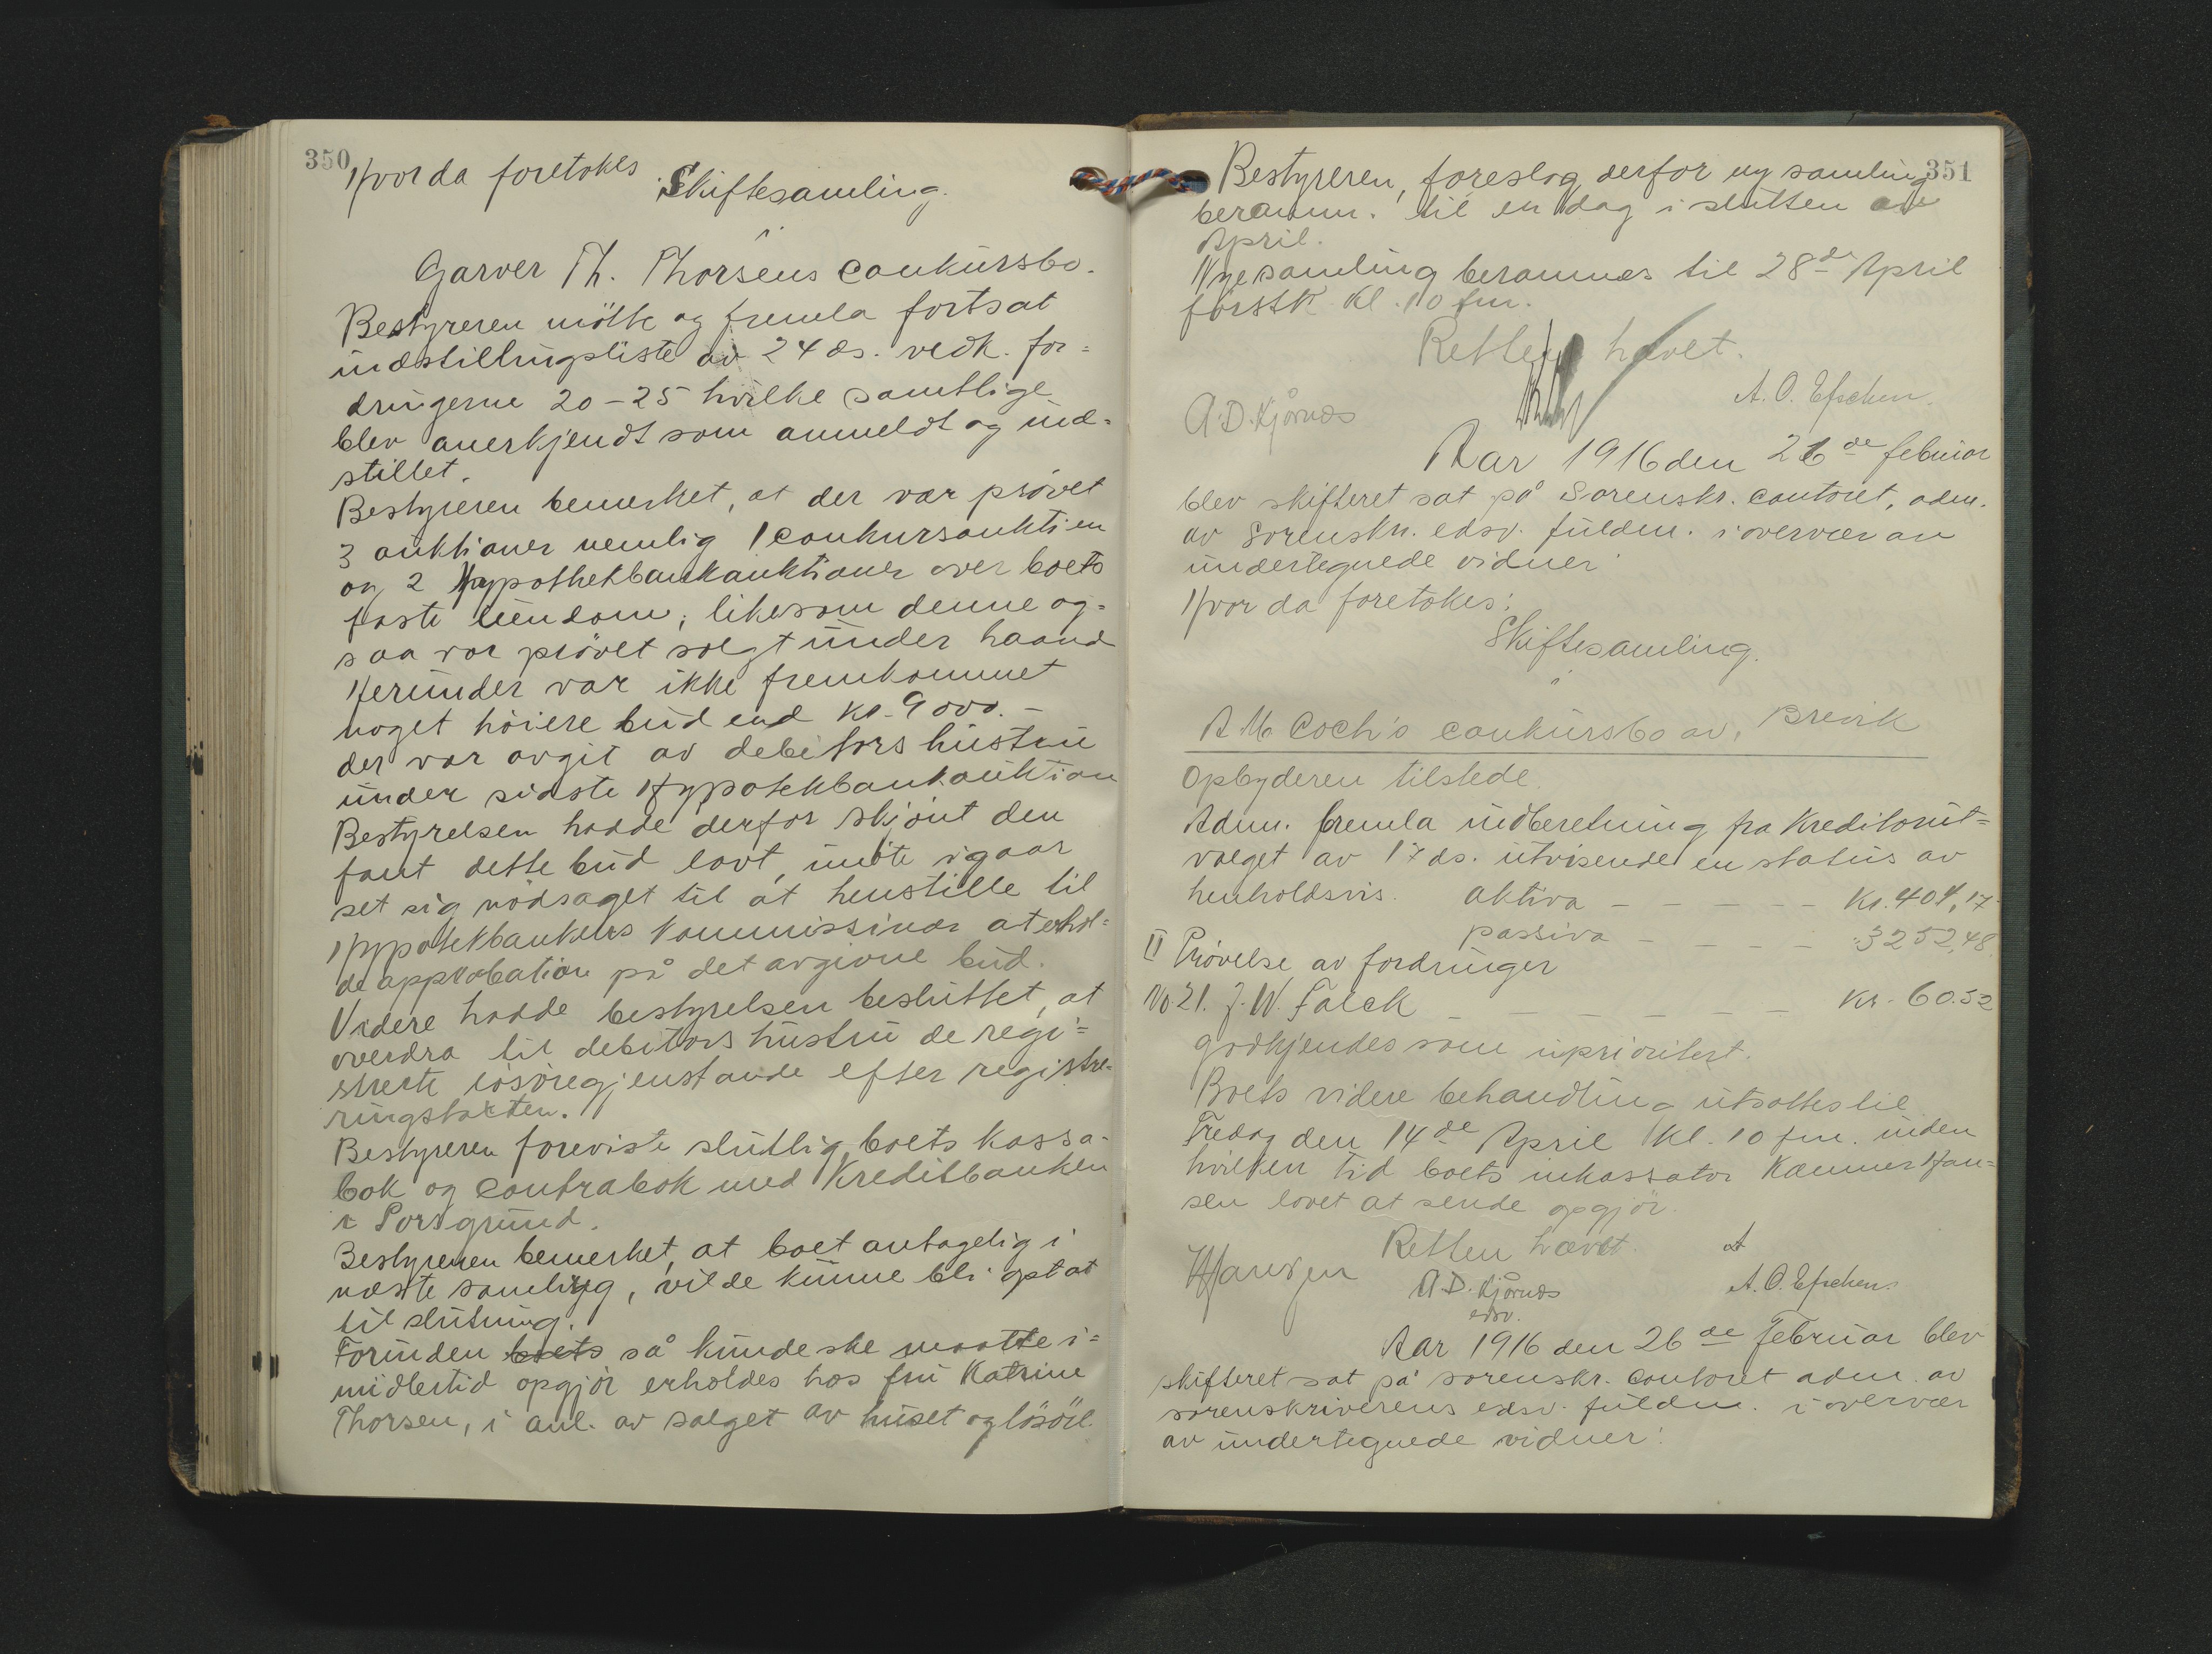 350
Hvor da foretokes
Skiftesamling.
Garver Th. Thorsens conkursbo.
Bestyreren mötte og fremla fortsat
indstillingsliste av 24 ds. vedk. for=
dringerne 20-25 hvilke samtlige
blev anerkjendt som anmeldt og ind=
stillet.
Bestyreren bemerket, at der var prövet
3 auktioner nemlig 1 conkursauktien
og 2 Hypothekbankauktioner over boets
faste eiendom, likesom denne og=
saa var prövet solgt under haand
Herunder var ikke fremkommet
noget höiere bud end Kr. 9000.-
der var avgit av debitors hustru
under sidste Hypotekbankauktion
Bestyrelsen hadde derfor skjönt den
fant dette bud lavt, maatte igaar
set sig nödsaget til at henstille til
Hypotekbankens Kommissinær at erhol=
de approbation på det avgivne bud.
Videre hadde bestyrelsen besluttet, at
overdra til debitors hustru de regi=
strerte lösöregjenstande efter registre-
ringstaxten.
Bestyreren foreviste slutlig boets kassa-
bok og contrabok med Kreditbanken
i Porsgrund.
Bestyreren bemerket, at boet antagelig i
næste samling, vilde kunne bli optat
til slutning.
Forinden boets så kunde ske maatte i=
midlertid opgjör erholdes hos fru Katrine
Thorsen, i anl. av salget av huset og lösöre.
351
Bestyreren, foreslog derfor ny samling
beramm. til en dag i slutten av
April.
Nye samling berammes til 28de April
förstk kl. 10 fm.
Retten hævet.
A. D. Kjørnæs
Aar 1916 den 26de februar
blev skifteret sat på Sorenskr. contoret, adm.
av Sorenskr. edsv. fuldm. i overvær av
undertegnede vidner
Hvor da foretokes:
Skiftesamling.
A M Coch's conkursbo av, Brevik
Opbyderen tilstede.
Adm. fremla indberetning fra Kreditorut=
valget av 17 ds. utvisende en status av
henholdsvis. aktiva - - - - - Kr. 404,17
passiva - - - - - 3252,48
II Prövelse av fordringer
No 21. J. W. Falck - - - - - - Kr. 60.52
godkjendes som uprioritert.
Boets videre behandling utsattes til
Fredag den 14de April kl. 10 fm. inden
hvilken tid boets inkassator Kæmner Han=
sen lovet at sende opgjör.
Retten hævet.
Hansen
A. D. Kjørnæs
edsv.
Aar 1916 den 26de Februar blev
skifteret sat på sorenskr. Contoret adm. av
sorenskriverens edsv. fuldm. i overvær
av undertegnede vidner: